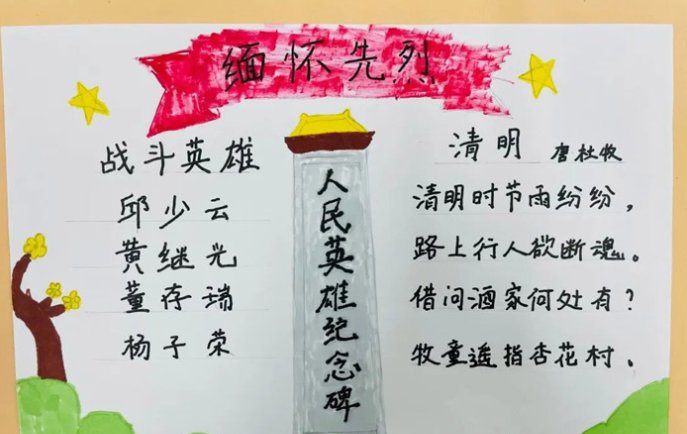 缅怀先烈
战斗英雄
邱少云
黄继光
董存瑞
杨子荣
人民英雄纪念碑
清明 唐杜牧
清明时节雨纷纷，
路上行人欲断魂。
借问酒家何处有？
牧童遥指杏花村、